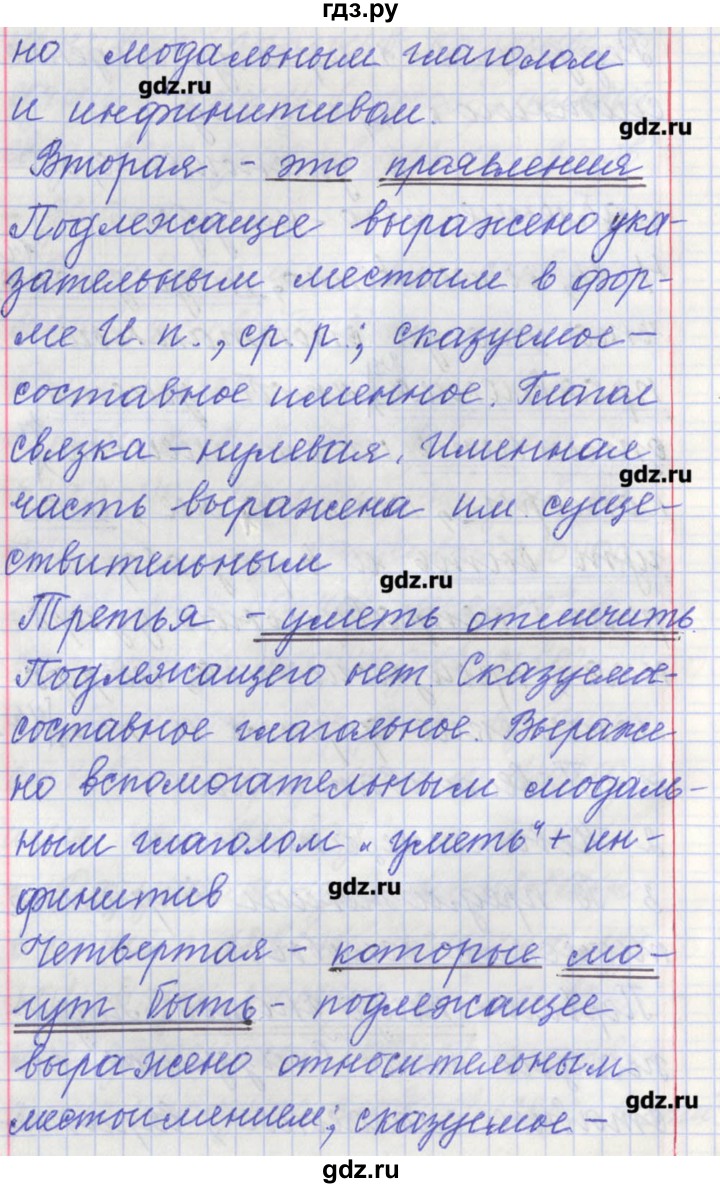 гдз.ру
но модальным глаголом
gdz.ru
и инфинитивом.
gdz.ru
Вторая - это проявления
Подлежащее выражено ука-
зательным местоим в фор-
ме И. п., ср. р.; сказуемое -
составное именное. Глагол
связка - нулевая. Именная
gdz.ru
часть выражена им. суще-
ствительным
gdz.ru
Третья - уметь отличить
Подлежащего нет. Сказуемое-
составное глагольное. Выраже
но вспомогательным модаль-
ным глаголом „уметь“ + ин-
gdz.ru
финитив
Четвертая - которые мо-
гут быть - подлежащее
выражено относительным
gdz.ru
местоимением; сказуемое -
gdz.ru